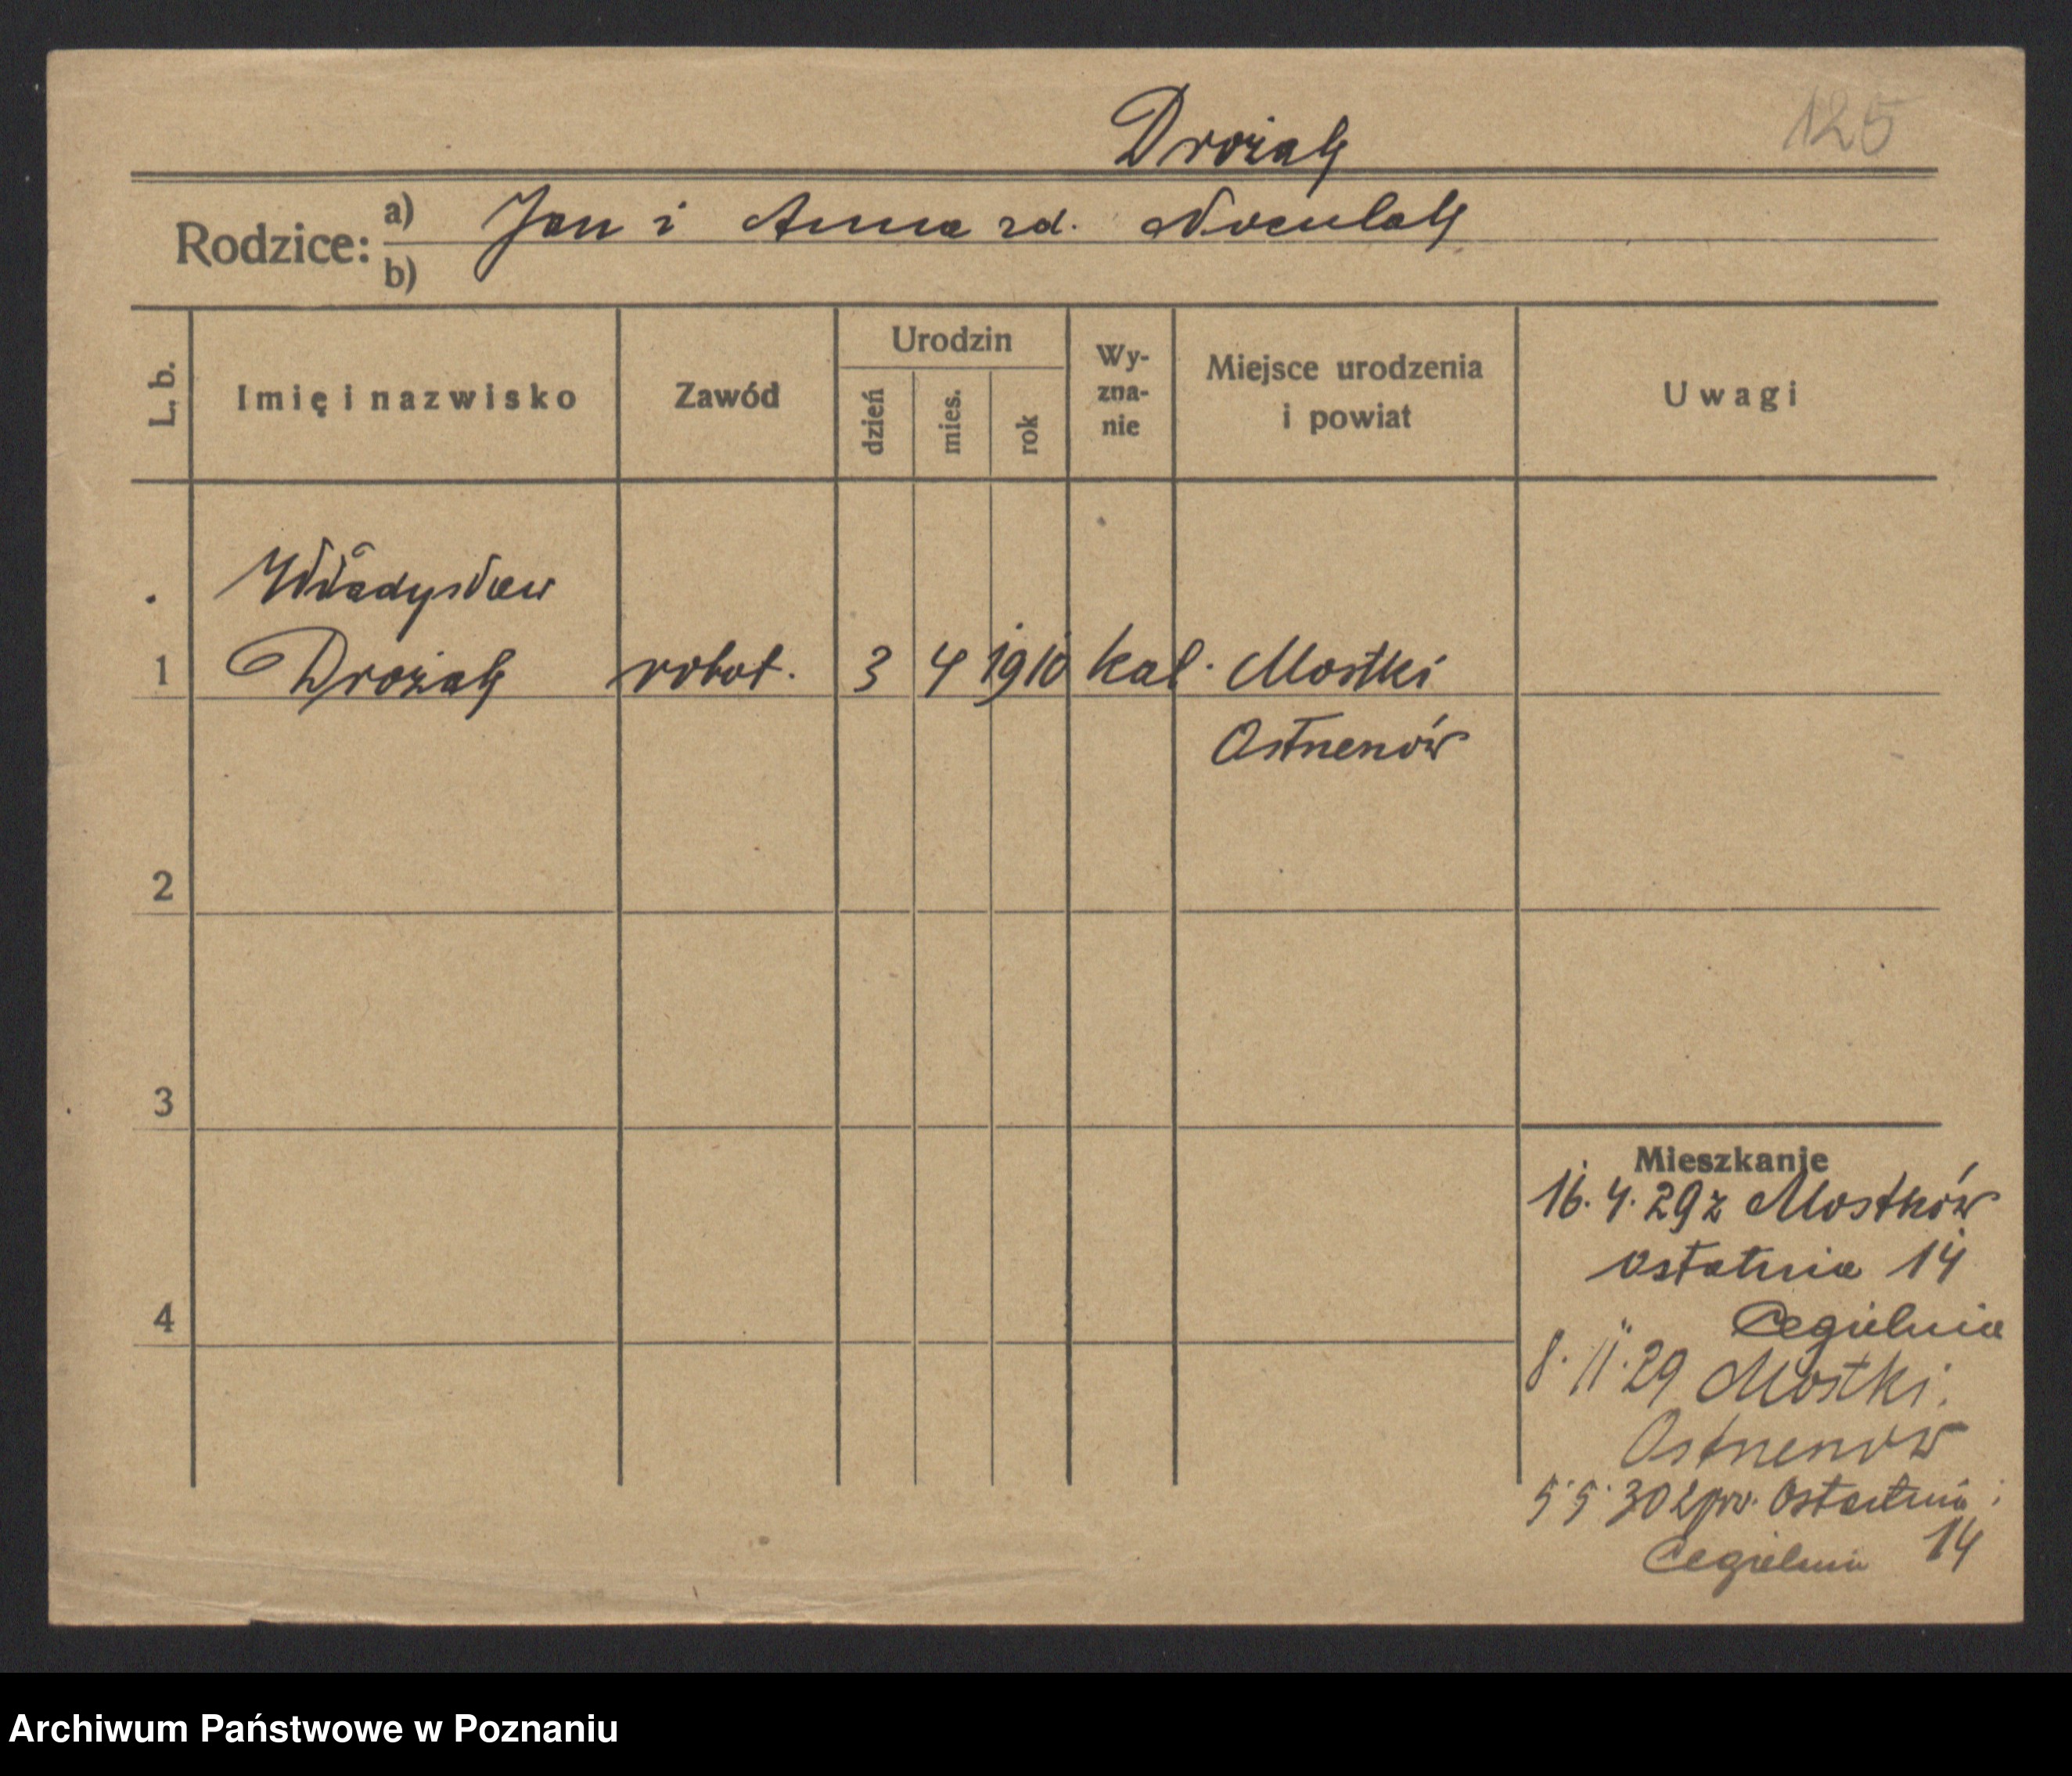 Drożak
125
Rodzice:
a) Jan i Anna zd. Noculak
b)
L. b.
Imię i nazwisko
Zawód
Urodzin
dzień
mies.
rok
Wy-
zna-
nie
Miejsce urodzenia
i powiat
Uwagi
Władysław
1 Drożak robot. 3 4 1910 kat. Mostki
Ostrzeszów
2
3
4
Mieszkanie
16.4.29 z Mostków
Ostatnia 14
Cegielnia
8.11.29 Mostki
5.5.30 Ostatnia
14
Archiwum Państwowe w Poznaniu